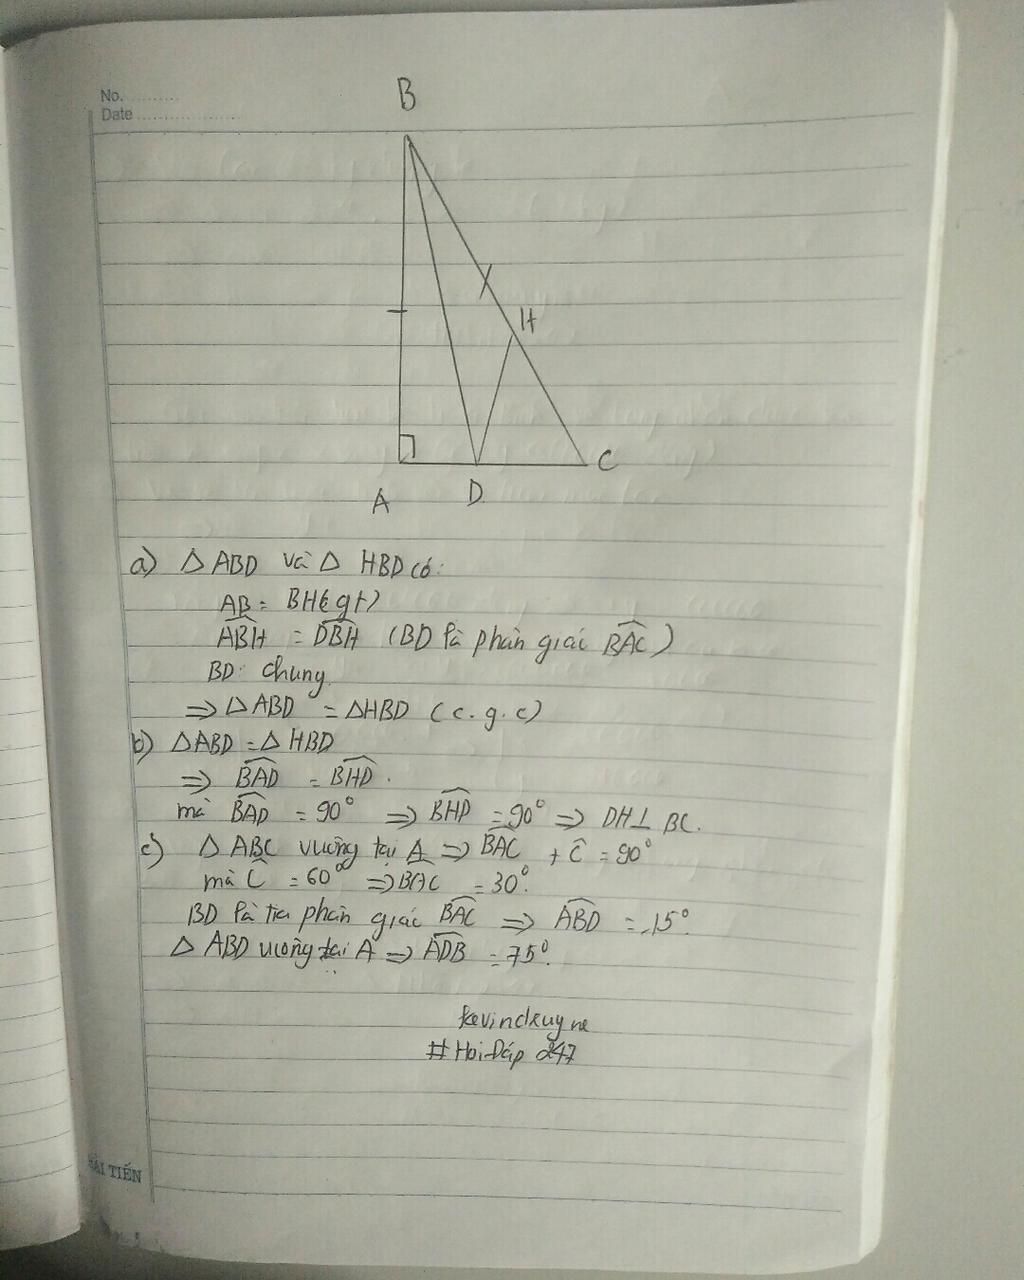 No. ..........
Date ....................
B
H
C
A D
a) Δ ABD và Δ HBD có:
AB = BH (gt)
ABH = DBH (BD là phân giác BAC)
BD: chung
⇒ Δ ABD = ΔHBD (c.g.c)
b) ΔABD = Δ HBD
⇒ BAD = BHD.
mà BAD = 90° ⇒ BHD = 90° ⇒ DH ⊥ BC.
c) Δ ABC vuông tại A ⇒ BAC + Ĉ = 90°
mà Ĉ = 60° ⇒ BAC = 30°.
BD là tia phân giác BAC ⇒ ABD = 15°.
Δ ABD vuông tại A ⇒ ADB = 75°.
# Hoi Đáp 247
HẢI TIẾN